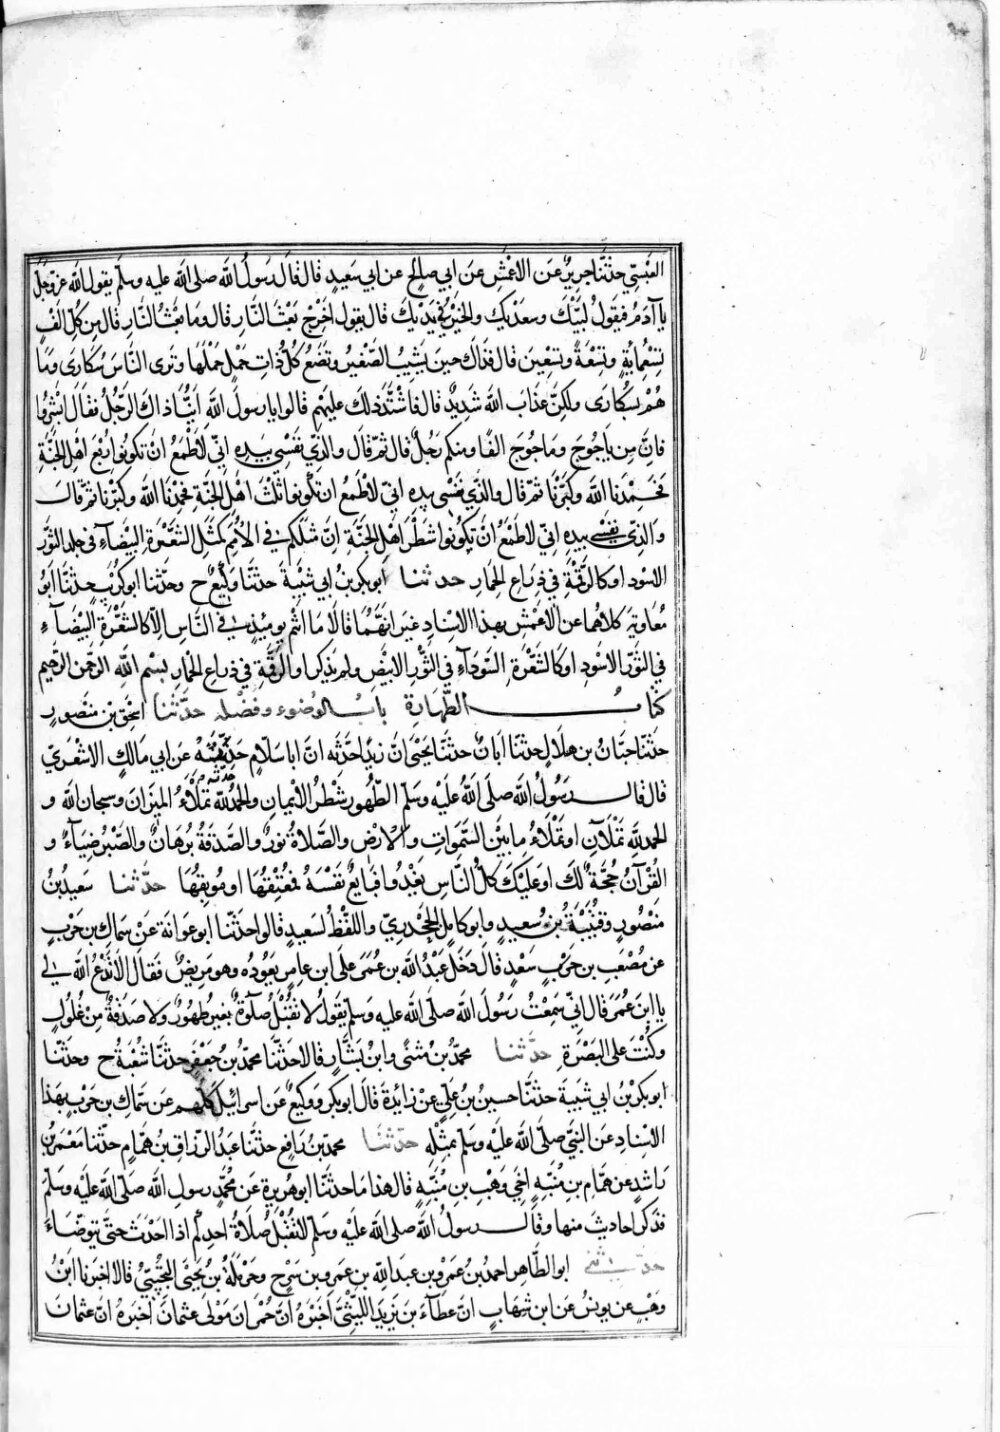 العبسي حدثنا جرير عن الاعمش عن ابي صالح عن ابي سعيد قال قال رسول الله صلى الله عليه وسلم يقول الله عز وجل
يا آدم فيقول لبيك وسعديك والخير في يديك قال يقول اخرج بعث النار قال وما بعث النار قال من كل الف
تسعماية وتسعة وتسعين قال فذاك حين يشيب الصغير وتضع كل ذات حمل حملها وترى الناس سكارى وما
هم بسكارى ولكن عذاب الله شديد قال فاشتد ذلك عليهم قالوا يا رسول الله اينا ذاك الرجل فقال ابشروا
فان من ياجوج وماجوج الفا ومنكم رجل قال ثم قال والذي نفسي بيده اني لاطمع ان تكونوا ربع اهل الجنة
فحمدنا الله وكبرنا ثم قال والذي نفسي بيده اني لاطمع ان تكونوا ثلث اهل الجنة فحمدنا الله وكبرنا ثم قال
والذي نفسي بيده اني لاطمع ان تكونوا شطر اهل الجنة ان مثلكم في الامم كمثل الشعرة البيضاء في جلد الثور
الاسود او كالرقمة في ذراع الحمار حدثنا ابو بكر بن ابي شيبة حدثنا وكيع ح وحدثنا ابو كريب حدثنا ابو
معاوية كلاهما عن الاعمش بهذا الاسناد غير انهما قالا ما انتم يومئذ في الناس الا كالشعرة البيضاء
في الثور الاسود او كالشعرة السوداء في الثور الابيض ولم يذكرا والرقمة في ذراع الحمار بسم الله الرحمن الرحيم
كتاب الطهارة باب الوضوء وفضله حدثنا اسحق بن منصور
حدثنا حبان بن هلال حدثنا ابان حدثنا يحيى ان زيدا حدثه ان ابا سلام حدثه عن ابي مالك الاشعري
قال قال رسول الله صلى الله عليه وسلم الطهور شطر الايمان والحمد لله تملاء الميزان وسبحان الله و
الحمد لله تملآن او تملاء ما بين السموات والارض والصلاة نور والصدقة برهان والصبر ضياء و
القرآن حجة لك او عليك كل الناس يغدو فبايع نفسه فمعتقها او موبقها حدثنا سعيد بن
منصور وقتيبة بن سعيد وابو كامل الجحدري واللفظ لسعيد قالوا حدثنا ابو عوانة عن سماك بن حرب
عن مصعب بن سعد قال دخل عبد الله بن عمر على ابن عامر يعوده وهو مريض فقال الا تدعو الله لي
يا ابن عمر قال اني سمعت رسول الله صلى الله عليه وسلم يقول لا تقبل صلوة بغير طهور ولا صدقة من غلول
وكنت على البصرة حدثنا محمد بن مثنى وابن بشار قالا حدثنا محمد بن جعفر حدثنا شعبة ح وحدثنا
ابو بكر بن ابي شيبة حدثنا حسين بن علي عن زائدة قال ابو بكر ووكيع عن اسرائيل كلهم عن سماك بن حرب بهذا
الاسناد عن النبي صلى الله عليه وسلم بمثله حدثنا محمد بن رافع حدثنا عبد الرزاق بن همام حدثنا معمر بن
راشد عن همام بن منبه اخي وهب بن منبه قال هذا ما حدثنا ابو هريرة عن محمد رسول الله صلى الله عليه وسلم
فذكر احاديث منها وقال رسول الله صلى الله عليه وسلم لا تقبل صلاة احدكم اذا احدث حتى يتوضاء
حدثني ابو الطاهر احمد بن عمرو بن عبد الله بن عمرو بن سرح وحرملة بن يحيى التجيبي قالا اخبرنا ابن
وهب عن يونس عن ابن شهاب ان عطاء بن يزيد الليثي اخبره ان حمران مولى عثمان اخبره ان عثمان